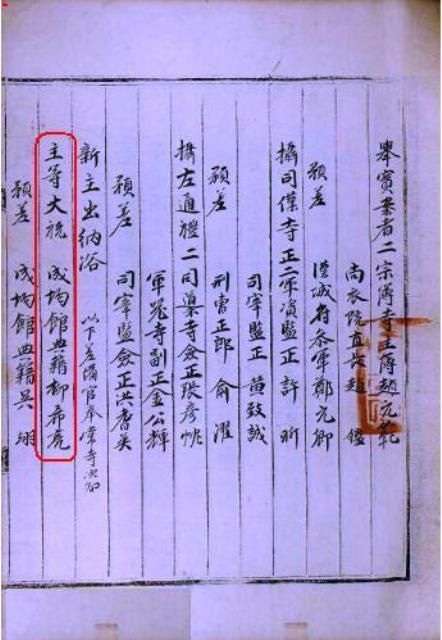 舉賓案者二宗簿寺主簿趙元範
尚衣院直長趙 鑑
預差 漢城府叅軍鄭元卿
攝司僕寺正二軍資監正許 昕
司宰監正黃致誠
預差 刑曹正郎俞 濯
攝左通禮二司䆃寺僉正張彦
軍器寺副正金公輝
預差 司宰監僉正洪耆英
新主出納浴 以下差備官奉常寺
主荨大祝 成均館典籍柳希亮
預差 成均館典籍吳 翊